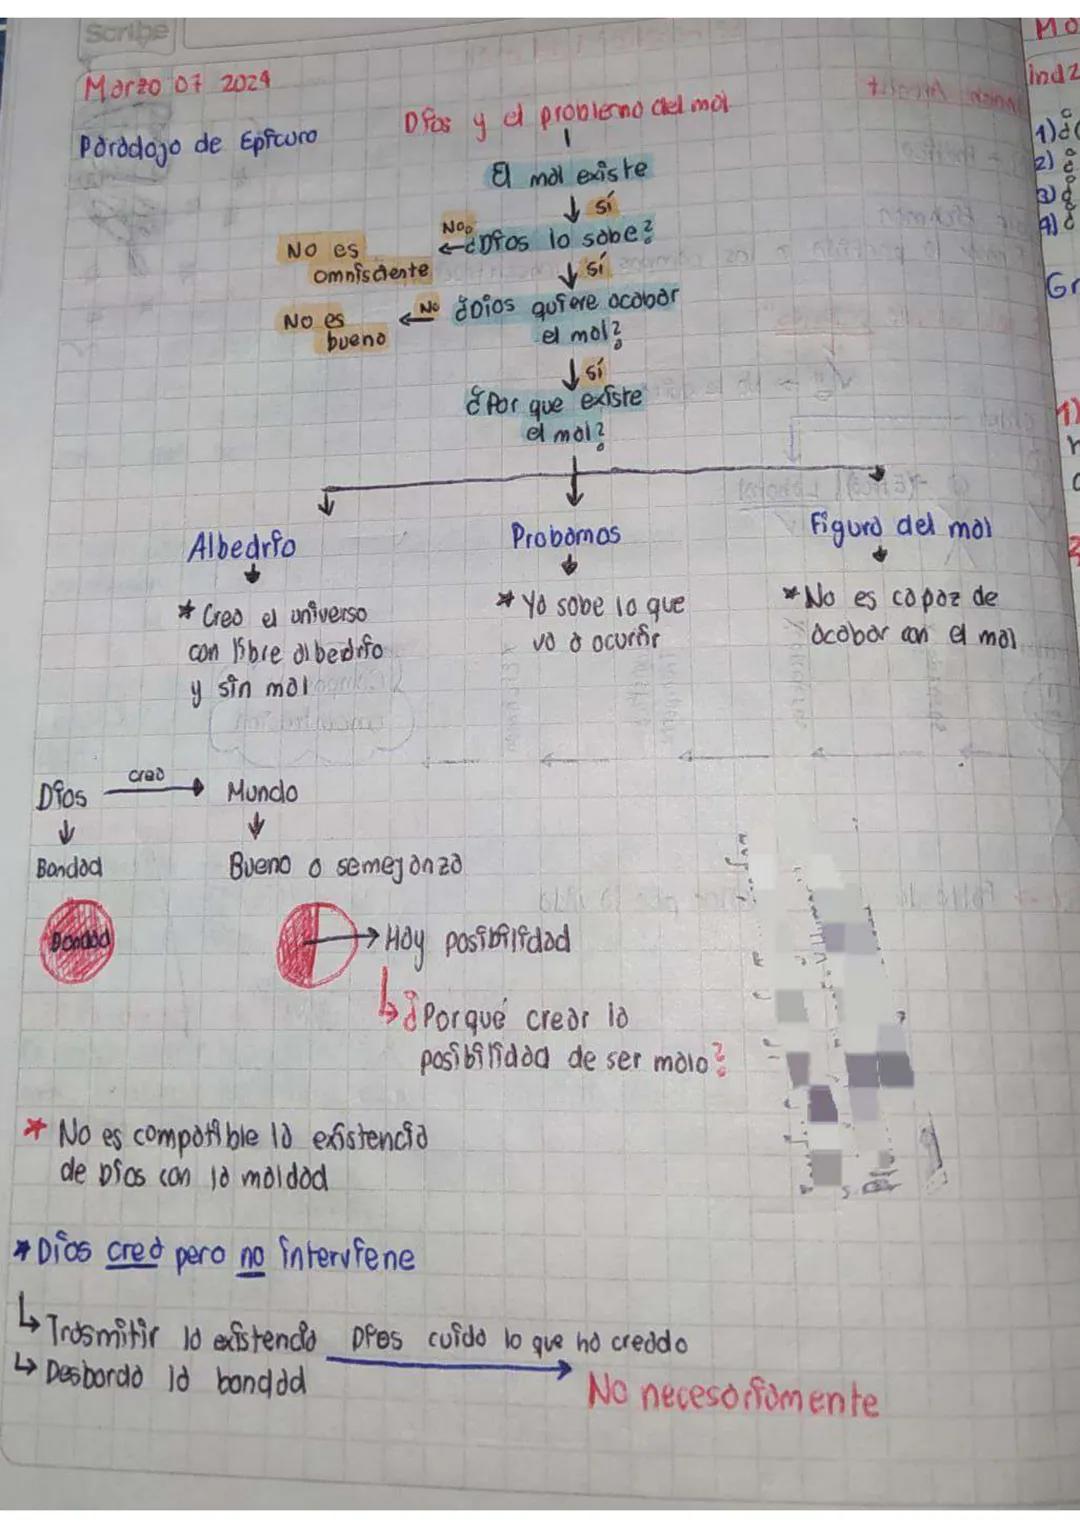 Scribe
Marzo 07 2024
Dios y el problema del mal
Paradoja de Epicuro
El mal existe
sí
No
¿Dios lo sabe?
No es
omnisciente
sí
No
¿Dios quiere acabar
el mal?
No es
bueno
sí
¿Por que existe
el mal?
Albedrío
Probarnos
Figura del mal
* Creo el universo
con libre albedrío
y sin mal
* Ya sabe lo que
va a ocurrir
* No es capaz de
acabar con el mal
Dios creo Mundo
Bondad
Bueno a semejanza
Bondad
Hay posibilidad
¿Porqué crear la
posibilidad de ser malo?
* No es compatible la existencia
de Dios con la maldad
* Dios creo pero no interviene
Trasmitir la existencia Dios cuida lo que ha creado
Desborda la bondad
No necesariamente
1)
2)
3)
4)
Gr
1)